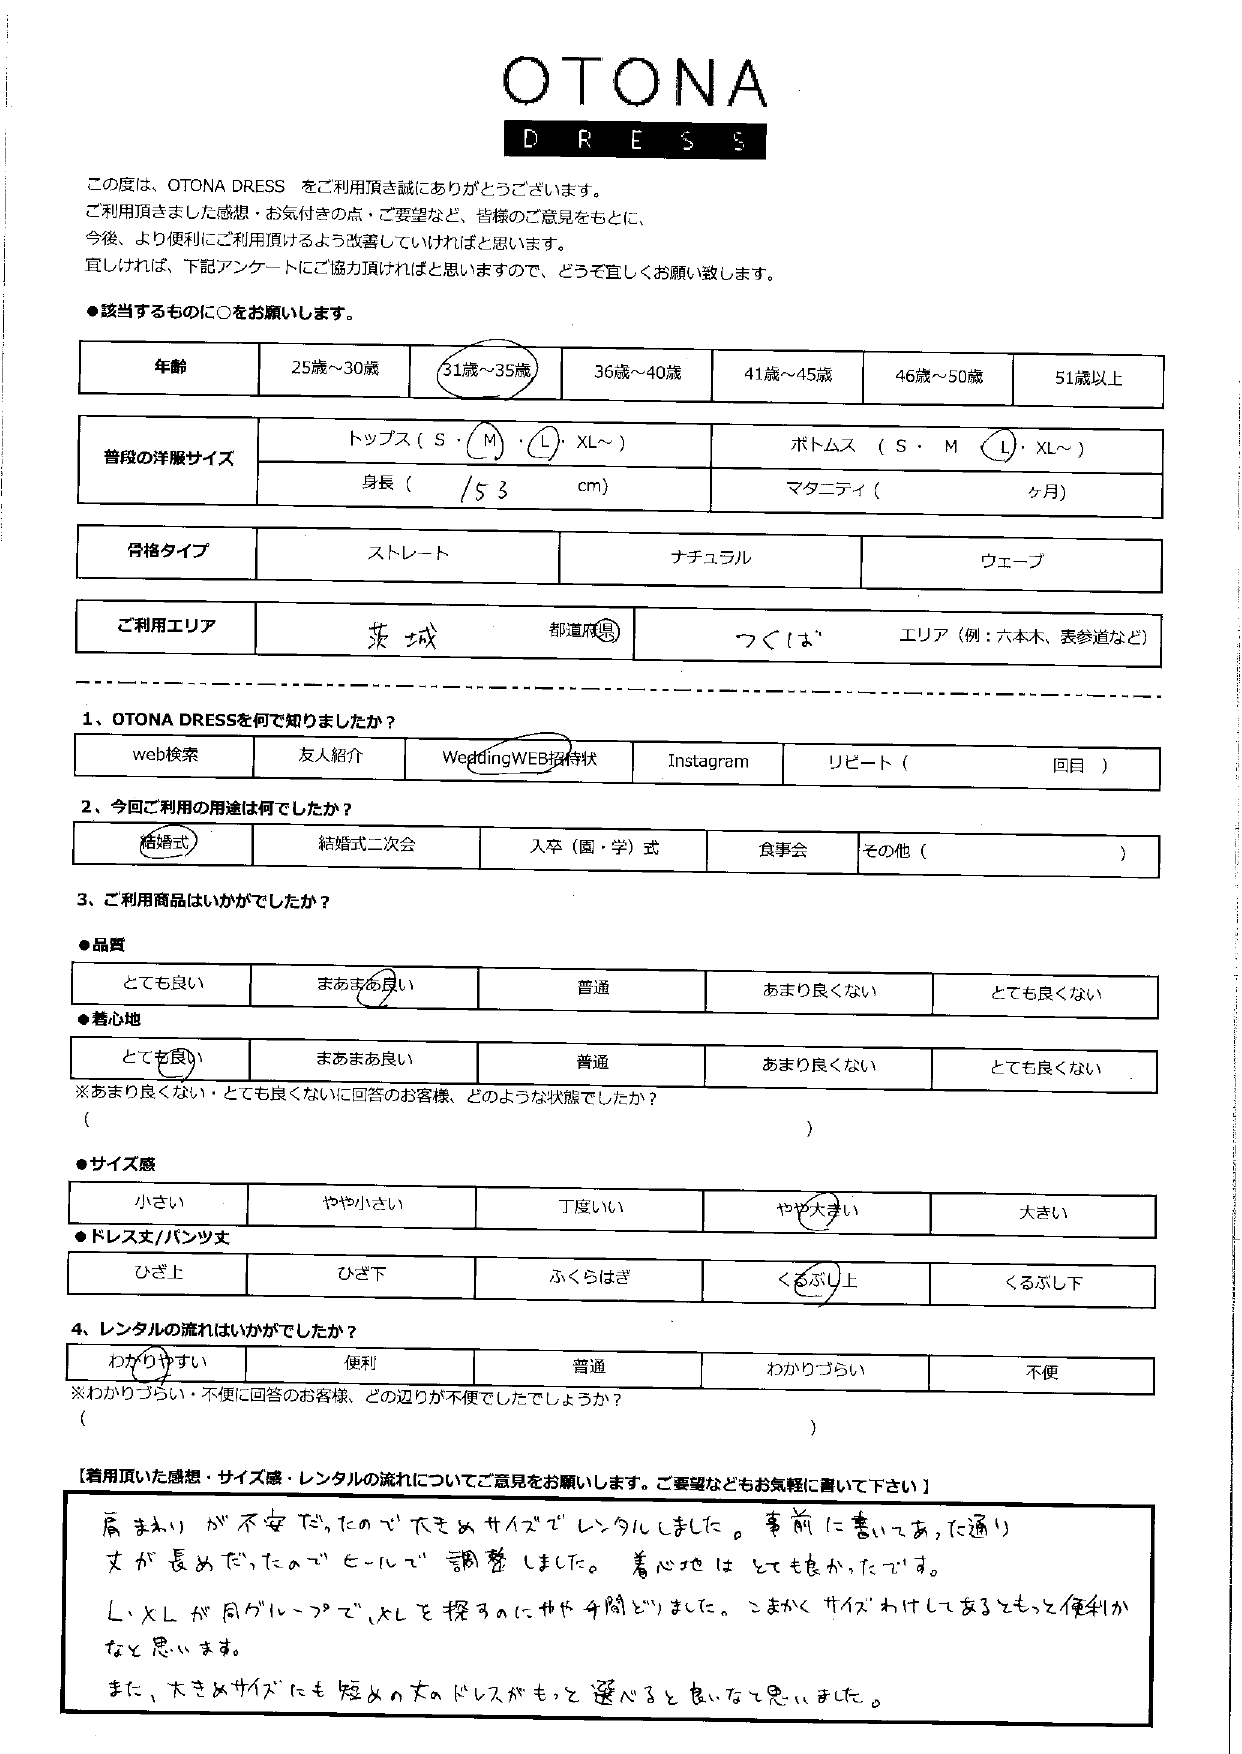 OTONA
DRESS
この度は、OTONA DRESS をご利用頂き誠にありがとうございます。
ご利用頂きました感想・お気付きの点・ご要望など、皆様のご意見をもとに、
今後、より便利にご利用頂けるよう改善していければと思います。
宜しければ、下記アンケートにご協力頂ければと思いますので、どうぞ宜しくお願い致します。
●該当するものに○をお願いします。
年齢 25歳～30歳 31歳～35歳 36歳～40歳 41歳～45歳 46歳～50歳 51歳以上
普段の洋服サイズ トップス ( S ・ M ・ L ・ XL～ ) ボトムス ( S ・ M L ・ XL～ )
身長 ( 153 cm) マタニティ ( ヶ月)
骨格タイプ ストレート ナチュラル ウェーブ
ご利用エリア 茨城 都道府県 つくば エリア（例：六本木、表参道など）
1、OTONA DRESSを何で知りましたか？
web検索 友人紹介 WeddingWEB招待状 Instagram リピート ( 回目 )
2、今回ご利用の用途は何でしたか？
結婚式 結婚式二次会 入卒（園・学）式 食事会 その他 ( )
3、ご利用商品はいかがでしたか？
●品質
とても良い まあまあ良い 普通 あまり良くない とても良くない
●着心地
とても良い まあまあ良い 普通 あまり良くない とても良くない
※あまり良くない・とても良くないに回答のお客様、どのような状態でしたか？
( )
●サイズ感
小さい やや小さい 丁度いい やや大きい 大きい
●ドレス丈/パンツ丈
ひざ上 ひざ下 ふくらはぎ くるぶし上 くるぶし下
4、レンタルの流れはいかがでしたか？
わかりやすい 便利 普通 わかりづらい 不便
※わかりづらい・不便に回答のお客様、どの辺りが不便でしたでしょうか？
( )
【着用頂いた感想・サイズ感・レンタルの流れについてご意見をお願いします。ご要望などもお気軽に書いて下さい】
肩まわりが不安だったので大きめサイズでレンタルしました。事前に書いてあった通り
丈が長めだったのでヒールで調整しました。着心地はとても良かったです。
L・XLが同グループで、XLを探すのにやや手間どりました。こまかくサイズわけしてあるともっと便利か
なと思います。
また、大きめサイズにも短めの丈のドレスがもっと選べると良いなと思いました。